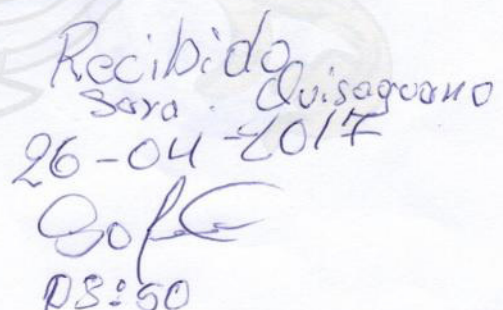 Recibido
Sara. Quisaguano
26-04-2017
08:50